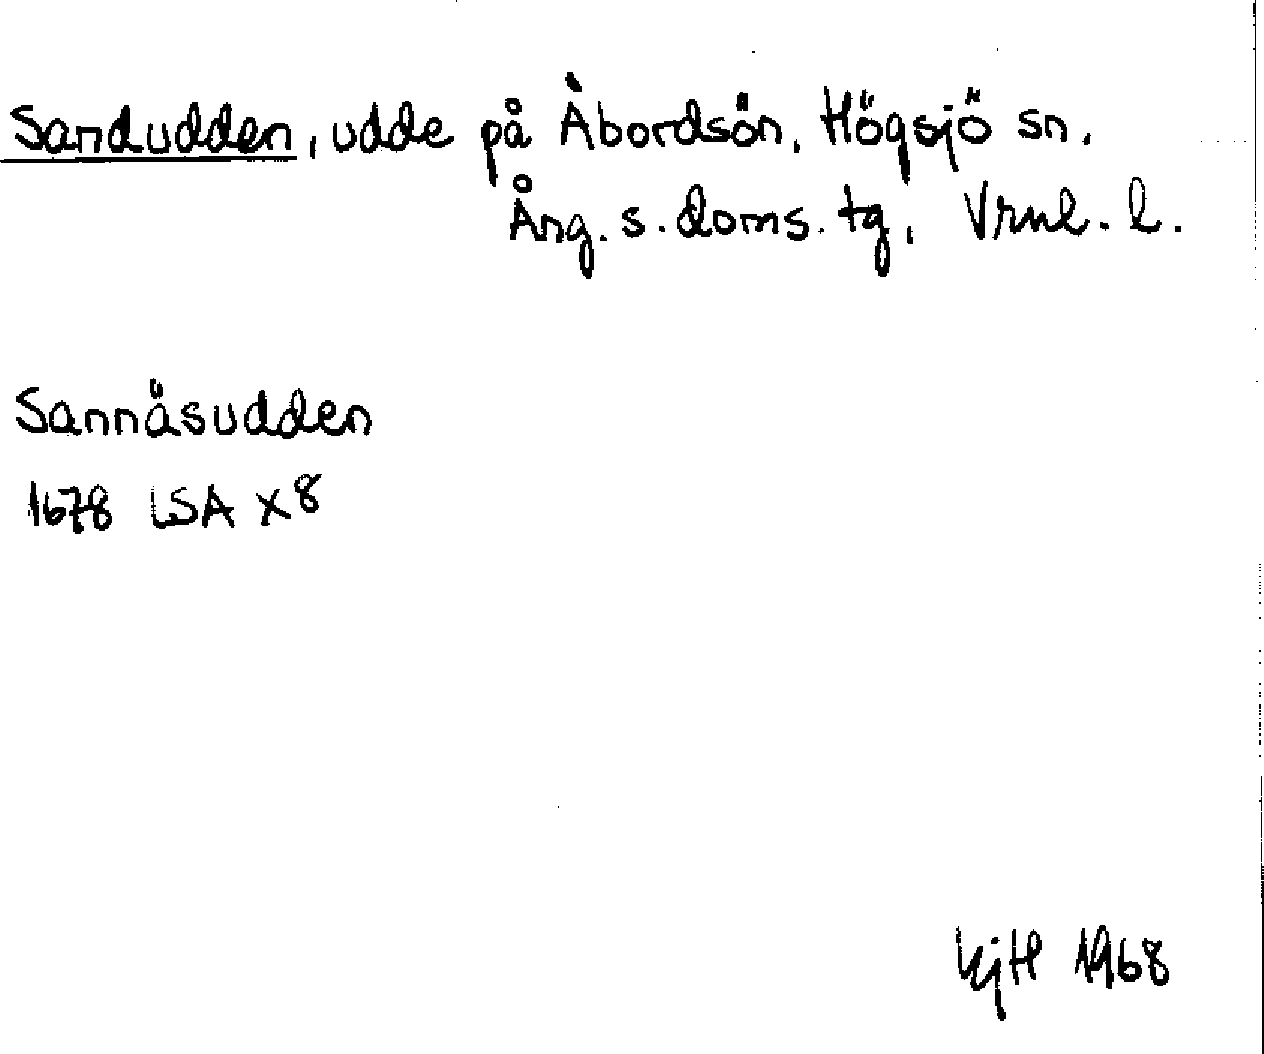 Sandudden, udde på Åbordsön, Högsjö sn,
Ång. s. doms. tg, Vrnl. l.
Sannäsudden
1678 LSA X8
KjH 1968